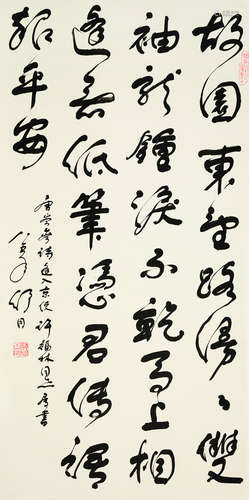 故園東望路漫漫雙
袖龍鍾淚不乾馬上相
逢無紙筆憑君傳語
報平安
唐岑參詩逢入京使 許錫林同志屬書
八〇年 舒同